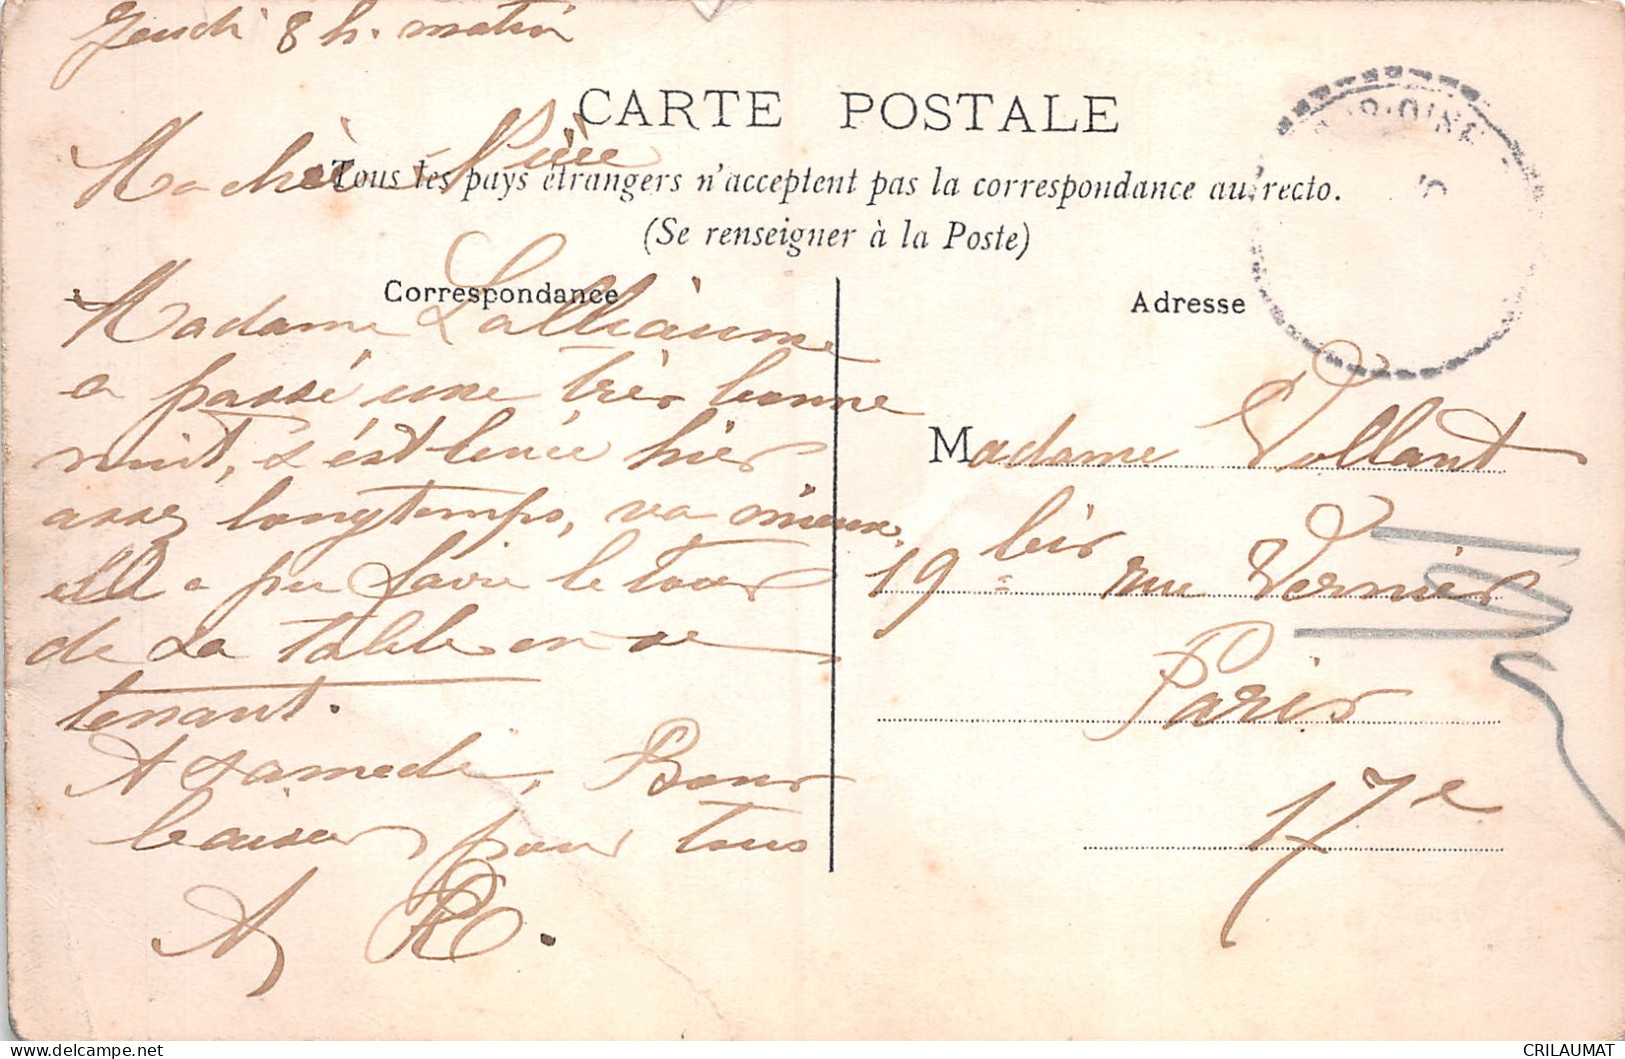 Jeudi 8 h. matin
CARTE POSTALE
Ma chère
Tous les pays étrangers n'acceptent pas la correspondance au recto.
(Se renseigner à la Poste)
Correspondance
Adresse
OISE
5
Madame Lalliaume
a passé une très bonne
nuit, s'est levée hier
assez longtemps, va mieux,
elle a pu faire le tour
de la table en se
tenant.
A samedi, Bons
baisers pour tous
A R.
Madame Vollant
19 bis rue Vernier
Paris
17e
CRILAUMAT